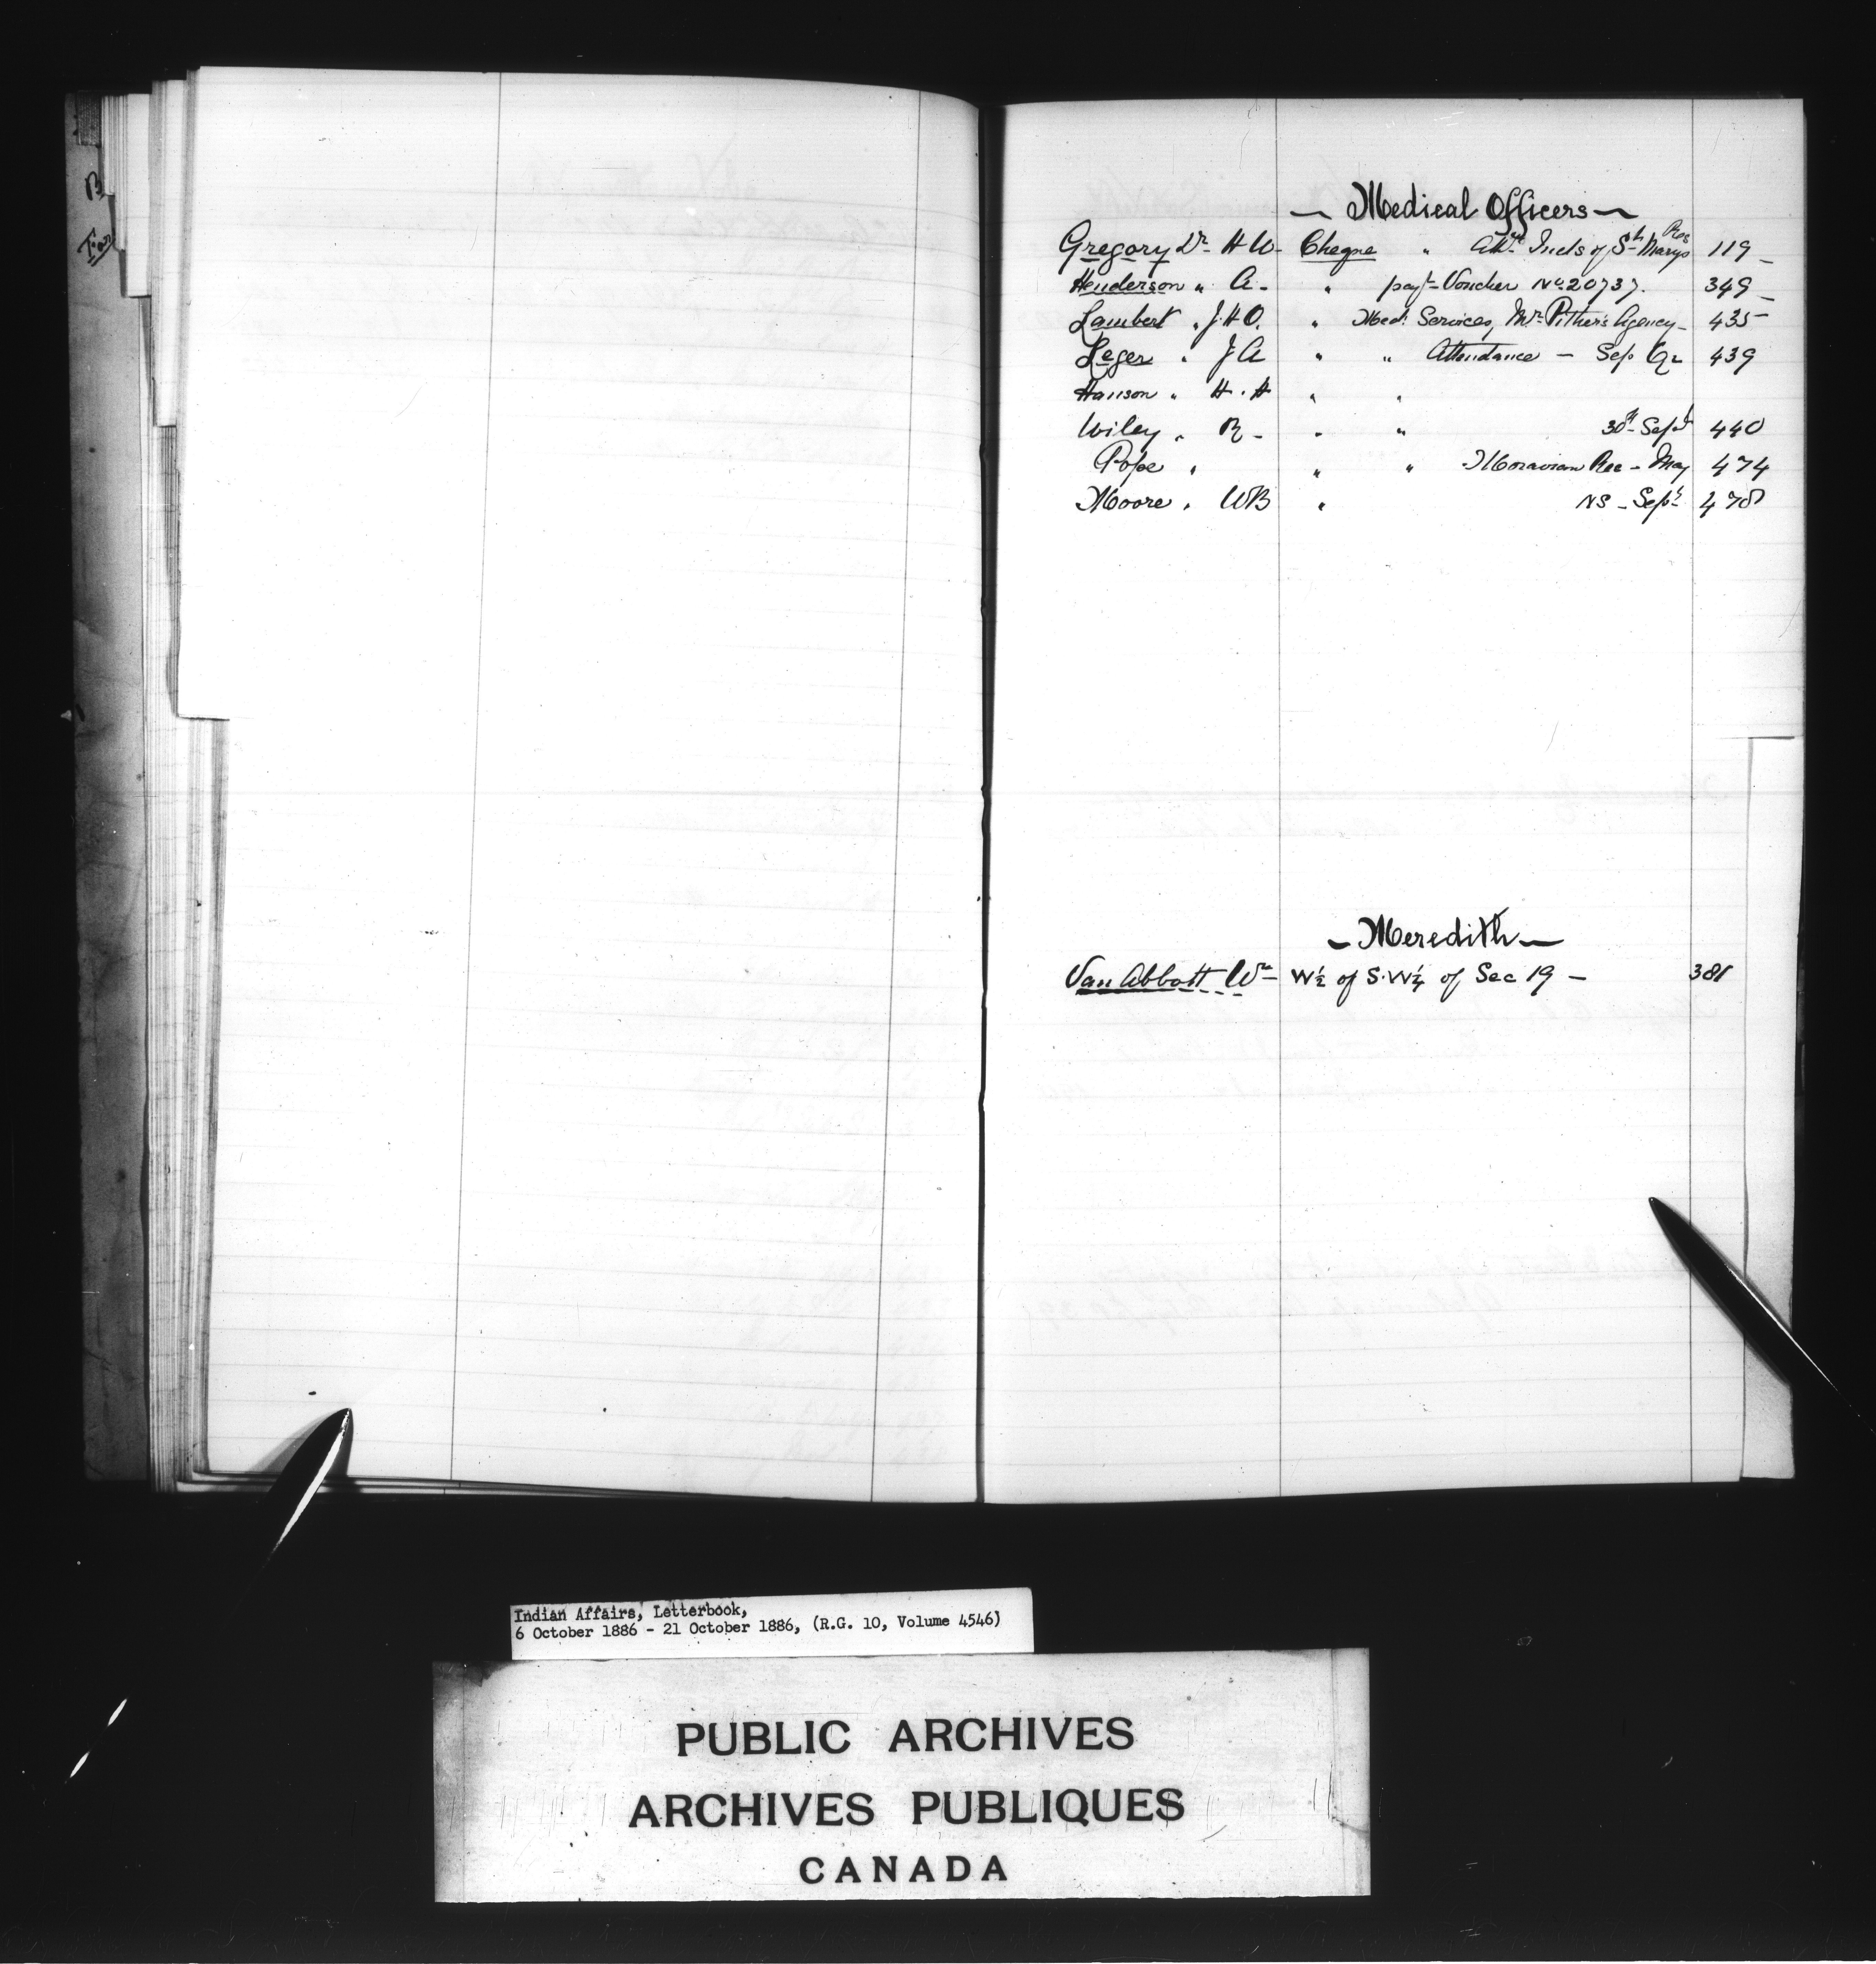 ~ Medical Officers ~
Gregory Dr H W - Cheque " Att. Inds of St. Marys Res 119 -
Henderson " A - " payt Voucher No. 20737. 349 -
Lambert " J. H O. " Med. Services, Mr. Pither's Agency - 435
Leger " J A " " Attendance - Sep Qr 439
Hanson " H. H " "
Wiley " R - " " 30th Sept 440
Pope " " " Moravian Res - May 474
Moore " W B " NS - Sept 478
- Meredith -
Van Abbott Wm - W ½ of S.W ¼ of Sec 19 - 381
Indian Affairs, Letterbook,
6 October 1886 - 21 October 1886, (R.G. 10, Volume 4546)
PUBLIC ARCHIVES
ARCHIVES PUBLIQUES
CANADA